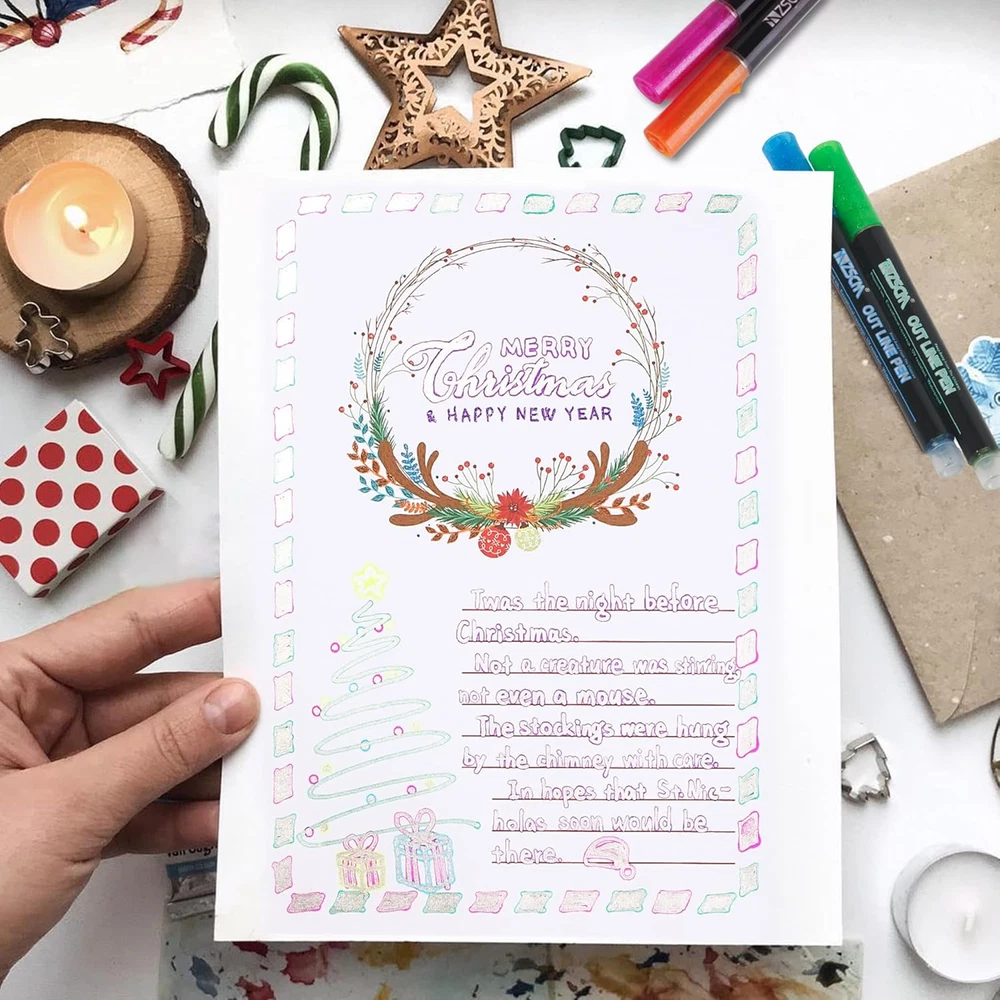 MERRY
Christmas
& HAPPY NEW YEAR
Twas the night before
Christmas.
Not a creature was stirring,
not even a mouse.
The stockings were hung
by the chimney with care.
In hopes that St. Nic-
holas soon would be
there.
NZSON OUT LINE PEN
NZSON OUT LINE PEN